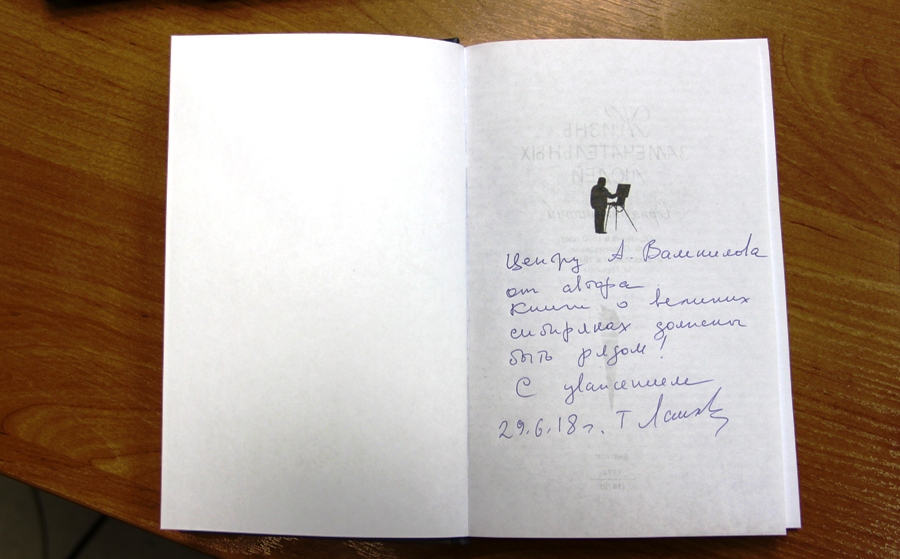 Жизнь
замечательных
людей
Центру А. Вампилова
от автора
Книги о великих
сибиряках должны
быть рядом!
С уважением
29.6.18 г. Т